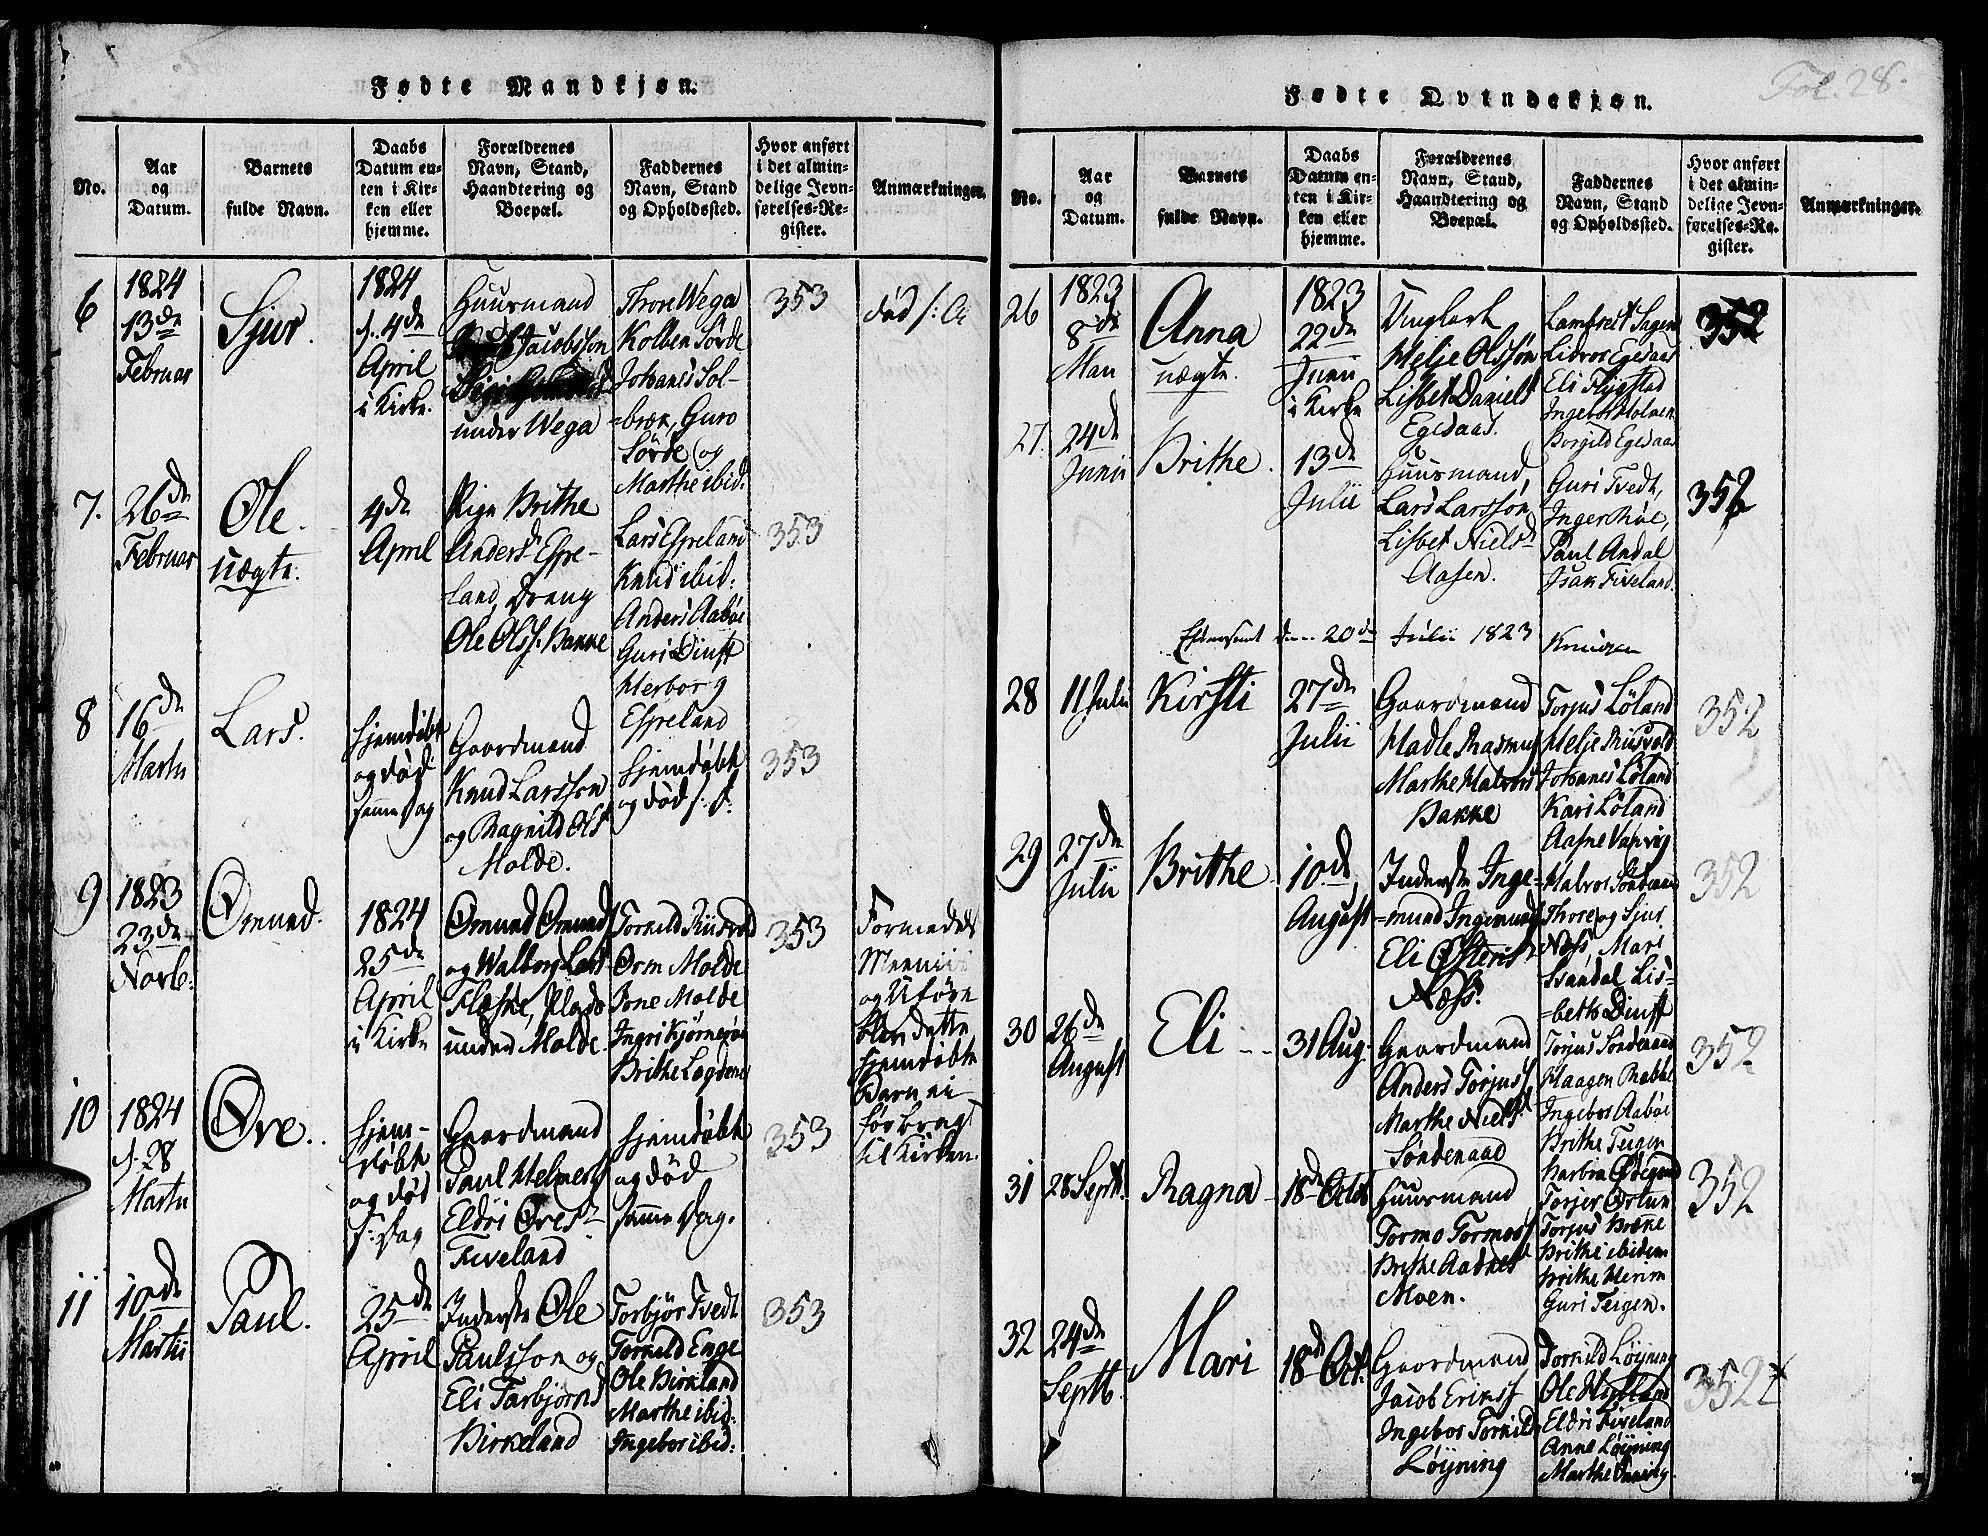 Fødte Mandkjøn.
No.
Aar
og
Datum.
Barnets
fulde Navn.
Daabs
Datum en-
ten i Kir-
ken eller
hjemme.
Forældrenes
Navn, Stand,
Haandtering og
Boepæl.
Faddernes
Navn, Stand
og Opholdssted.
Hvor anført
i det almin-
delige Jevn-
førelses-Re-
gister.
Anmærkninger.
6
1824
13de
Februar
Sjur.
1824
d. 4de
April
i Kirke.
Huusmand
Jacobsson
under Wega
Thore Wega
Kolben Sørde
Johanes Sol-
bræk, Guro
Sørde og
Marthe ibid:
353
død
7.
26de
Februar
Ole.
uægte.
4de
April
Pige Brithe
Anders Espe-
land, Dreng
Ole Olss. Bakke
Lars Espeland
Knud ibid:
Anders Aabøe
Guri Dinst
Herborg
Espeland
353
8
16de
Martii
Lars.
hjemdøbt
og død
samme Dag
Gaardmand
Knud Larsson
og Ragnild Ols
Molde.
hjemdøbt
og død s. d.
353
9
1823
23de
Novb:
Ømund.
1824
25de
April
i Kirke
Ømund Ømund
og Walborg Lars
Flæske, Plads
under Molde.
Torkild Riisvold
Orm Molde
Jone Molde
Ingri Kjørnerøe
Brithe Løgdene
353
Formedelst
og Uføre
blev dette
hjemdøbte
Barn ei
førbragt
til Kirken.
10
1824
d. 28
Martii
Øve.
hjem-
døbt
og død
s: Dag
Gaardmand
Paul Helmers
Eldri Øves
Fiveland
hjemdøbt
og død
samme Dag.
353
11
10de
Martii
Paul.
25de
April
Inderste Ole
Paulsson og
Eli Tarbjørns
Birkeland
Torbjør Tvedt
Torkild Enge
Ole Birkland
Marthe ibid:
Ingebor ibid:
353
Fødte Qvindekjøn.
Fol. 28.
No.
Aar
og
Datum.
Barnets
fulde Navn.
Daabs
Datum en-
ten i Kir-
ken eller
hjemme.
Forældrenes
Navn, Stand,
Haandtering og
Boepæl.
Faddernes
Navn, Stand
og Opholdssted.
Hvor anført
i det almin-
delige Jevn-
førelses-Re-
gister.
Anmærkninger.
26
1823
8de
Mai
Anna
uægte.
1823
22de
Junii
i Kirke
Ungkarl
Helje Olssøn
Lisbet Daniels
Egedaas.
Lambret Sagen
Lidvor Egedaas
Eli Flygstad
Ingebor Holmen
Borgild Egedaas
352
27.
24de
Junii
Brithe.
13de
Julii
Huusmand,
Lars Larssøn,
Lisbet Niels
Aasen.
Guri Tvedt,
Inger Røe,
Paul Andal
Isak Fiveland.
352
den 20de Julii 1823
28
11 Julii
Kirsti
27de
Julii
Gaardmand
Hadle Rasmus
Marthe Halvors
Bakke
Torjus Løland
Helje Riisvold
Johanes Løland
Kari Løland
Aasne Vanvig
352
29
27de
Julii
Brithe
10de
August
Inderste Inge-
mund Ingemund
Eli Østens
Næss.
Halvor Søndenaa
Thore og Sjur
Næss, Mari
Svandal Lis-
beth Dinst
352
30
26de
August
Eli
31 Aug.
Gaardmand
Anders Torjus
Marthe Niels
Søndenaae
Torjus Søndenaae
Haagen Rabbe
Ingebor Aabøe
Brithe Teigen
352
31
28 Septb.
Ragna
18de Octbr
Huusmand
Tormo Tormos
Brithe Aadnes
Moen.
Torjer Østun
Torjus Bræke
Brithe ibidem
Guri Teigen.
352
32
24de
Septb.
Mari
18de Oct.
Gaardmand
Jacob Eriks
Ingebor Torkilds
Løyning
Torkild Løyning
Ole
Eldri Fiveland
Anne Løyning
Marthe
352